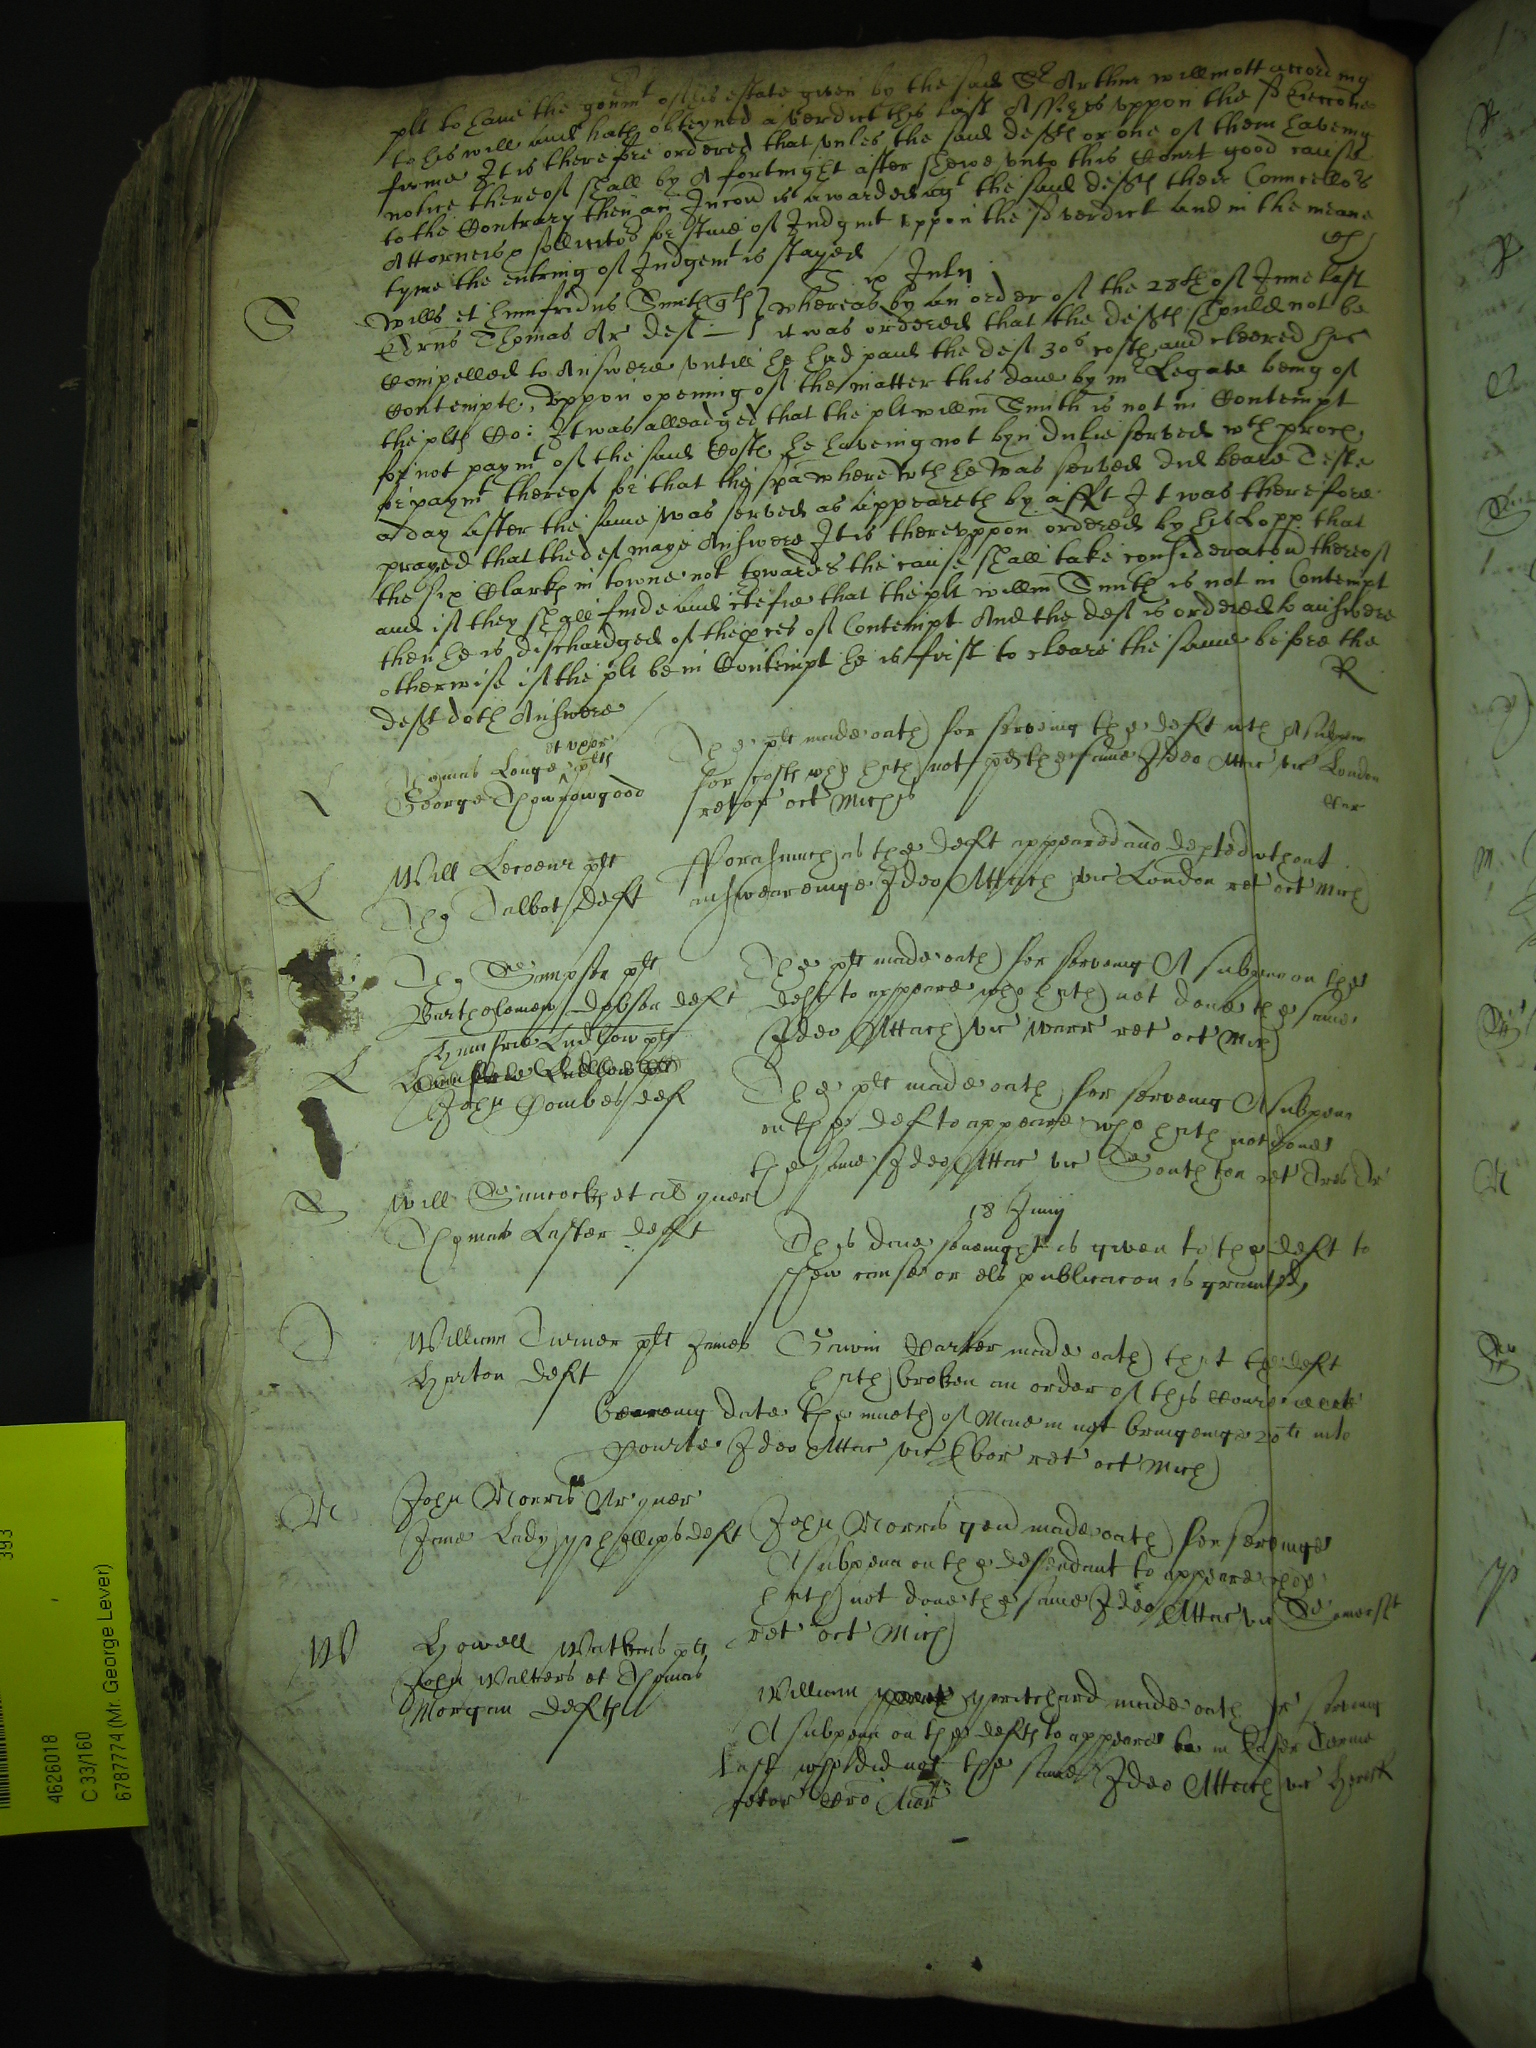 plt to have the gounmt of his estate given by the said Sr Arthur Willmott according
to his will and hath obteyned a verdict this last Assizes uppon the
firme It is therefore ordered that unles the said defts or one of them haveing
notice thereof shall by A fortnight after shewe unto this Court good cause
to the Contrary then an Iniuncon is awarded agt the said defts their Councellors
Attorneis sollicitors for staie of Iudgmt uppon the sd verdict and in the meane
tyme the entring of Iudgemt is stayed
S ix July
S
Wills et Humfridus Smith plts whereas by an order of the 28th of June last
Thomas Ar deft it was ordered that the defts should not be
Compelled to Answere untill he had paid the deft 30s costs and cleered his
Contempte, Uppon opening of the matter this daie by mr Legate being of
the plts Co: It was alleadged that the plt willm Smith is not in Contempt
for not paymt of the said Costs he haveing not byn dulie served wth proces
for paymt thereof for that the spa wherewth he was served did beare Teste
a day after the same was served as appeareth by afft It was therefore
prayed that the deft maye Answere It is thereuppon ordered by his Lopp that
the six Clarks in towne not towards the cause shall take consideration thereof
and if they shall finde and certefie that the plt willm Smith is not in Contempt
then he is dischardged of the pces of Contempt And the deft is ordered to answere
otherwise if the plt be in Contempt he is first to cleare the same before the
deft doth Answere
R
L
Thomas Longe et uxor plts
George Thorowgood
The plt made oath for serveing the deft wth A subpena
for costs who hath not pd the same Ideo Attac vic London
retor oct Michis
L
Will Lecoeur plt
Tho Talbot deft
Fforasmuch as the deft appeared and depted wthout
answeareinge Ideo Attach vic London ret oct Mich
Tho Simpson plt
Bartholomew Dobson deft
The plt made oath for serveing A subpena on the
deft to appeare who hath not done the same
Ideo Attach vic Warr ret oct Mich
L
Humfrie Ludlow plt
John Combes def
The plt made oath for serveing A subpena
on the def to appeare who hath not done
the same Ideo Attac vic Southton ret Tres Tr
S
Will Simcocks et al quer
Thomas Laster deft
18 Junij
This daie senenight is given to the deft to
shew cause or els publicacon is graunted
T
William Turner plt James
Harton deft
Gawin Carter made oath that the deft
hath broken an order of this Courte
beareing date the nineth of Maie in not bringeinge 20li into
Courte Ideo Attac vic Ebor ret oct Mich
M
John Morris Ar quer
Jane Lady Phillips deft
John Morris gen made oath for serveinge
A subpena on the defendant to appeare who
hath not done the same Ideo Attac vic Somersett
ret oct Mich
W
Howell Watkins plt
John Walters et Thomas
Morgan defts
William Pritchard made oath for serveing
A subpena on the defts to appeare in Easter Terme
last who did not the same Ideo Attach vic Hereff
retor
393
4626018
C 33/160
6787774 (Mr. George Lever)